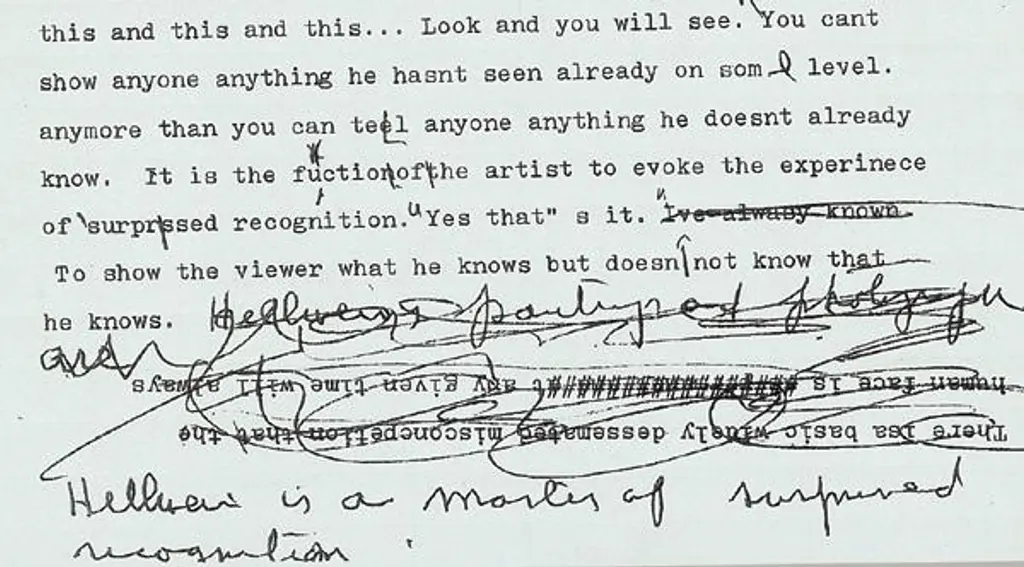 this and this and this... Look and you will see. You cant
show anyone anything he hasnt seen already on som level.
anymore than you can tell anyone anything he doesnt already
know. It is the fuction of the artist to evoke the experinece
of surprssed recognition. "Yes that" s it. "Ive alwasy known.
To show the viewer what he knows but doesn not know that
he knows. Hellweins painting and photograph
and
human face is ################at any given time will always
There isa basic widely dessemated misconcpetion that the
Hellwein is a master of surprised
recognition.